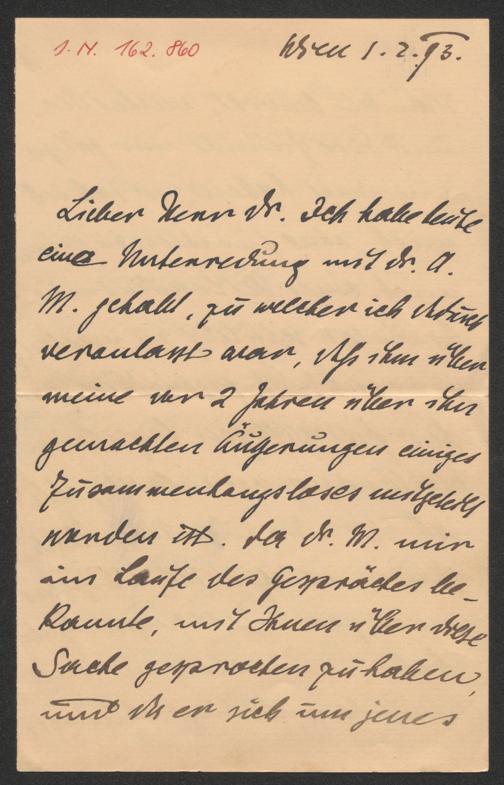 I. N. 162.860
Wien 1. 2. 93.
Lieber Herr Dr. Ich habe heute
eine Unterredung mit Dr. A.
M. gehabt, zu welcher ich dadurch
veranlasst war, daß ihm über
meine vor 2 Jahren über ihn
gemachten Äußerungen einiges
Zusammenhangsloses mitgeteilt
worden ist. Da Dr. M. mir
im Laufe des Gespräches be-
kannte, mit Ihnen über diese
Sache gesprochen zu haben,
und da er sich um jenes